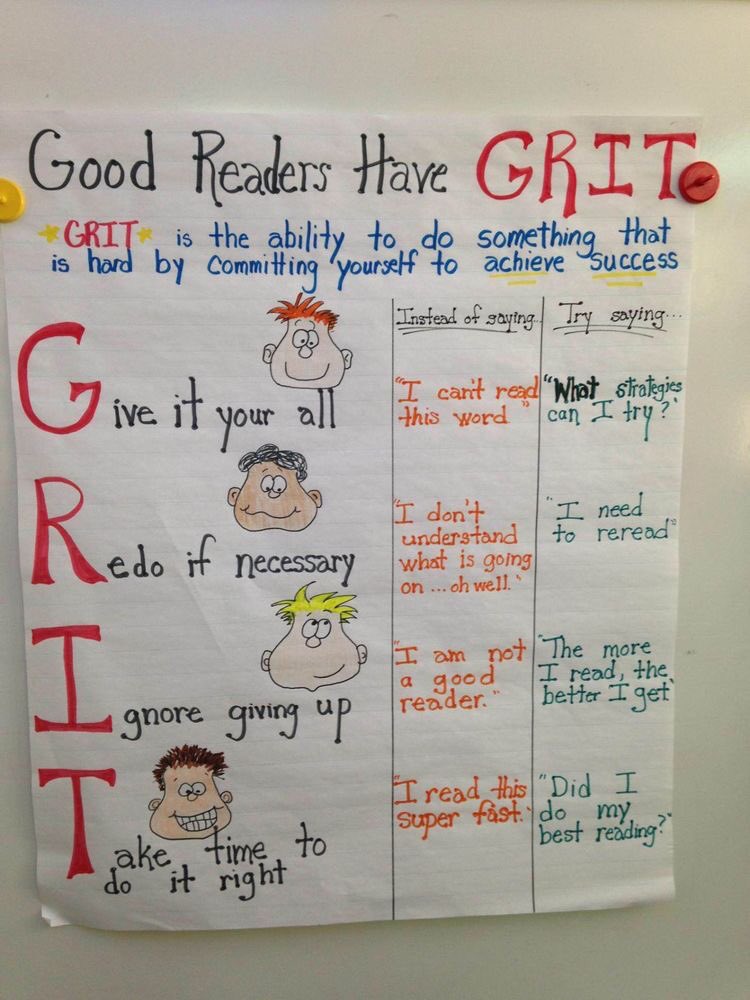 Good Readers Have GRIT
*GRIT* is the ability to do something that
is hard by committing yourself to achieve success
Instead of saying...
Try saying...
Give it your all
"I can't read
this word"
"What strategies
can I try?"
Redo if necessary
"I don't
understand
what is going
on ... oh well."
"I need
to reread"
Ignore giving up
"I am not
a good
reader."
"The more
I read, the
better I get"
Take time to
do it right
"I read this
super fast."
"Did I
do my
best reading?"